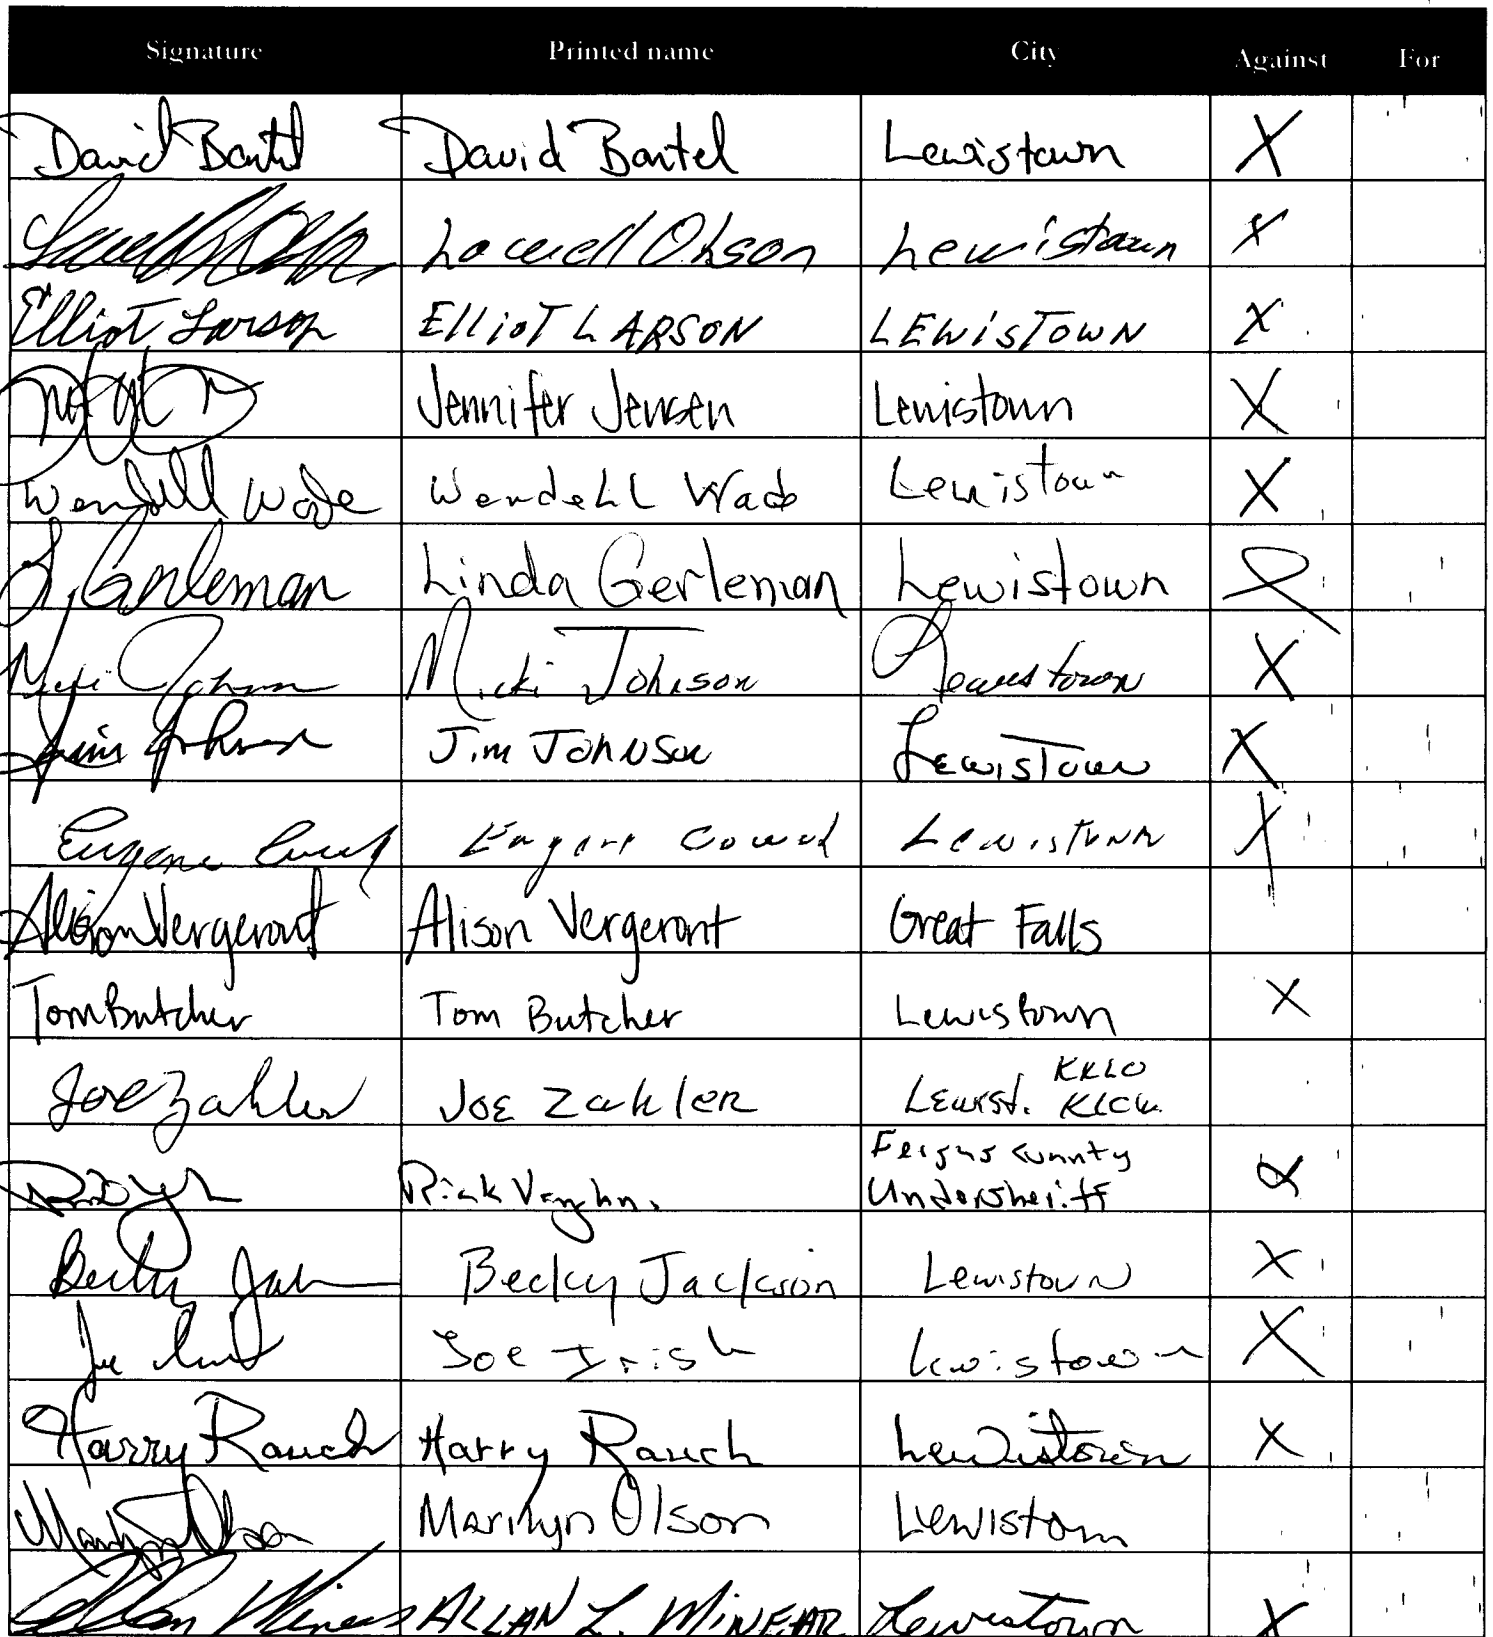 Signature Printed name City Against For
David Bantel David Bantel Lewistown X
Lowell Olson Lewistown X
Elliot Larson ElliOT LARSON LEWisTOWN X
Jennifer Jensen Lewistown X
Wendell Wade WendeLL Wade Lewistown X
L. Gerleman Linda Gerleman Lewistown X
Micki Johnson Micki Johnson Lewistown X
Jim Johnson Jim JOHNSON LewisTown X
Eugene Eugene Lewistown X
Alison Vergeront Alison Vergeront Great Falls
Tom Butcher Tom Butcher Lewistown X
Joe Zahler JOE ZahlER Lewist. KXLO
KLCM
Rick Vaughn. Fergus County
Undersheriff X
Becky Jackson Lewistown X
Joe Irish Lewistown X
Harry Rauch Harry Rauch Lewistown X
Marilyn Olson Marilyn Olson Lewistown
Allan Minear ALLAN L. MINEAR Lewistown X